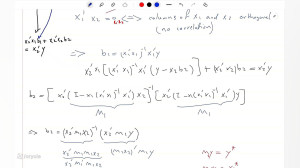 x₁'x₂ = 0 ⟺ columns of x₁ and x₂ orthogonal
(no correlation)
x₂'x₁b₁ + x₂'x₂b₂
= x₂'y
⟹ b₁ = (x₁'x₁)⁻¹x₁'(y - x₂b₂)
x₂'x₁[(x₁'x₁)⁻¹x₁'(y - x₂b₂)] + (x₂'x₂)b₂ = x₂'y
b₂ = [x₂'(I - x₁(x₁'x₁)⁻¹x₁')x₂]⁻¹[x₂'(I - x₁(x₁'x₁)⁻¹x₁')y]
M₁ M₁
⟹ b₂ = (x₂'m₁x₂)⁻¹(x₂'m₁y)
x₂'m₁m₁x₂ (m₁x₂)'m₁y
x₂'m₁'m₁x₂
my = y*